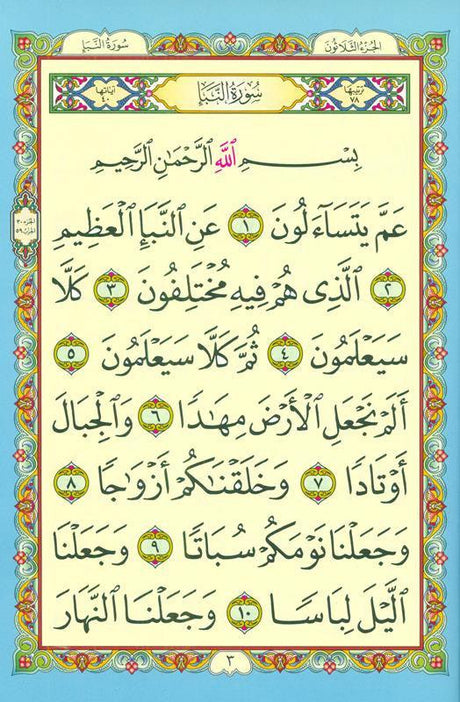 الجُزءُ الثَّلَاثُون
سُورَةُ النَّبَإِ
ترتيبها
٧٨
سُورَةُ النَّبَإِ
آياتها
٤٠
بِسْمِ ٱللَّهِ ٱلرَّحْمَٰنِ ٱلرَّحِيمِ
الجزء ٣٠
الحزب ٥٩
عَمَّ يَتَسَآءَلُونَ ١ عَنِ ٱلنَّبَإِ ٱلْعَظِيمِ
٢ ٱلَّذِى هُمْ فِيهِ مُخْتَلِفُونَ ٣ كَلَّا
سَيَعْلَمُونَ ٤ ثُمَّ كَلَّا سَيَعْلَمُونَ ٥
أَلَمْ نَجْعَلِ ٱلْأَرْضَ مِهَٰدًا ٦ وَٱلْجِبَالَ
أَوْتَادًا ٧ وَخَلَقْنَٰكُمْ أَزْوَٰجًا ٨
وَجَعَلْنَا نَوْمَكُمْ سُبَاتًا ٩ وَجَعَلْنَا
ٱلَّيْلَ لِبَاسًا ١٠ وَجَعَلْنَا ٱلنَّهَارَ
٣